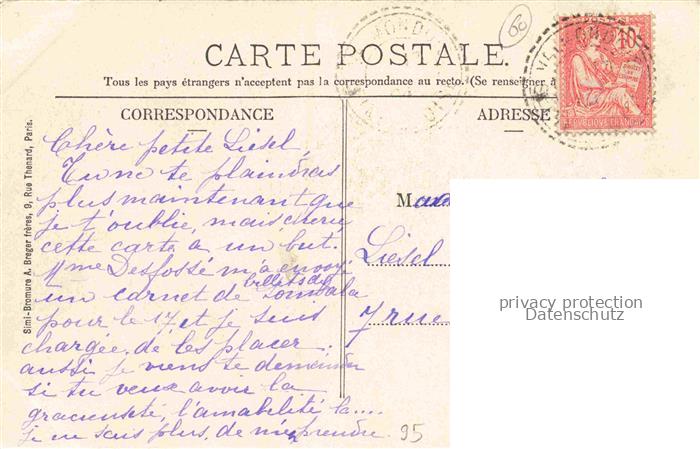 60
CARTE POSTALE.
Tous les pays étrangers n'acceptent pas la correspondance au recto. (Se renseigner à
CORRESPONDANCE
ADRESSE
10
REPUBLIQUE FRANÇAISE
Simi-Bromure A. Breger frères, 9, Rue Thenard, Paris.
Chère petite Liesel,
Tu ne te plaindras
plus maintenant que
je t'oublie, mais chérie
cette carte a un but.
Mme Desfossé m'a envoyé
un carnet de billets de tombola
pour le 17 et je suis
chargée de les placer.
aussi je viens te demander
si tu veux avoir la
gracieuseté, l'amabilité la....
je ne sais plus, de m'en prendre.
95
Liesel
7 rue
privacy protection
Datenschutz